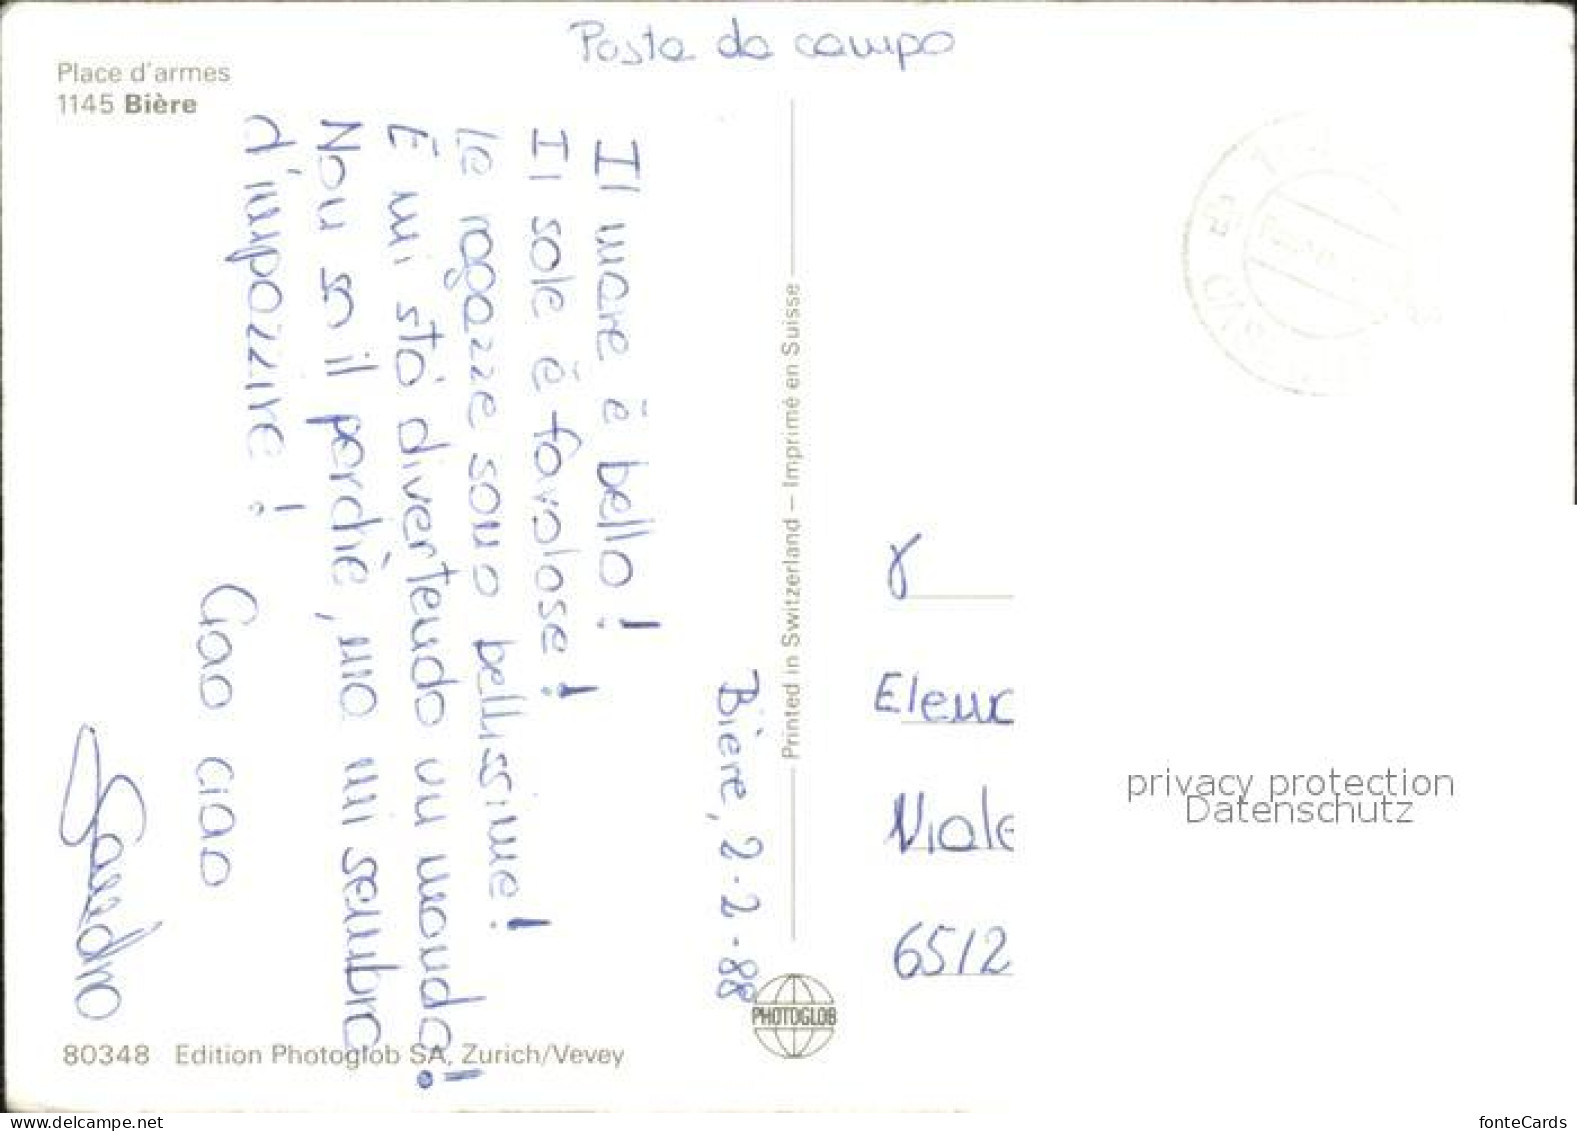 Posta da campo
Place d'armes
1145 Bière
Bière, 2-2-88
Il mare è bello!
Il sole è favolose!
Le ragazze sono bellissime!
E mi stò divertendo un mondo!
Non so il perchè, mo mi sembra
d'impazzire!
Ciao ciao
Sandro
Printed in Switzerland – Imprimé en Suisse
PHOTOGLOB
80348 Edition Photoglob SA, Zurich/Vevey
Viale
6512
privacy protection
Datenschutz
www.delcampe.net
fonteCards